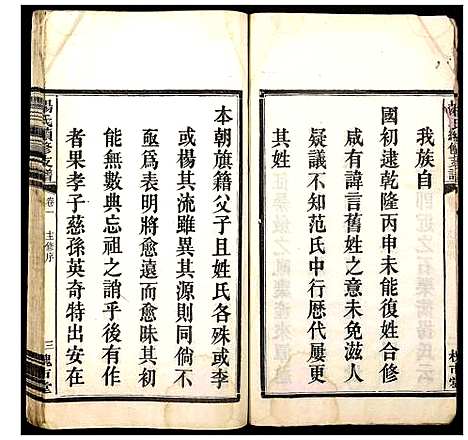 我族自
國初逮乾隆丙申未能復姓合修
咸有諱言舊姓之意未免滋人
疑議不知范氏中行歷代屢更
其姓
本朝旗籍父子且姓氏各殊或李
或楊其流雖異其源則同倘不
亟爲表明將愈遠而愈昧其初
能無數典忘祖之誚乎後有作
者果孝子慈孫英奇特出安在
楊氏續修支譜
卷一
主修序
三